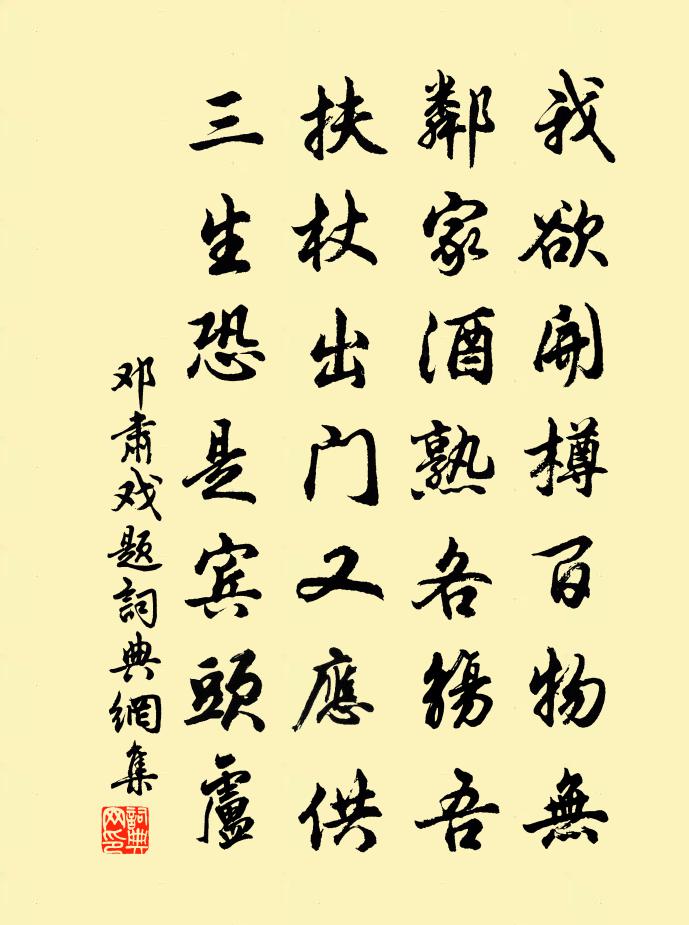 我欲開樽百物無
鄰家酒熟各觴吾
扶杖出門又應供
三生恐是宾頭盧
邓肅戏题詞典網集
詞典网印